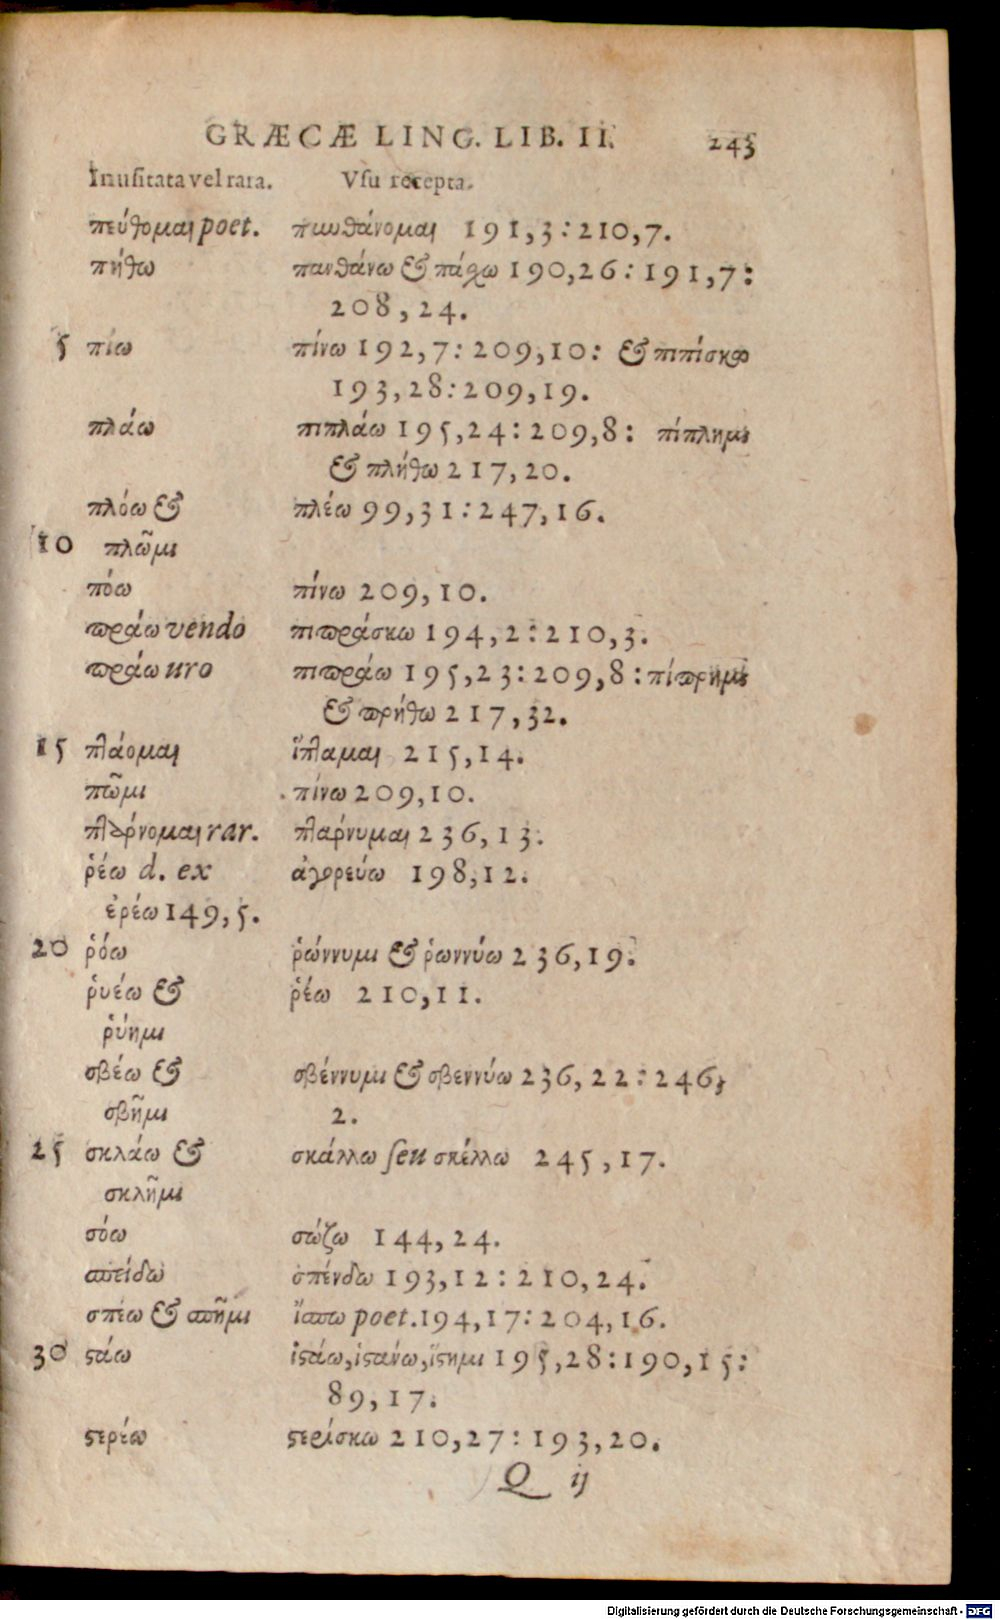 GRÆCÆ LING. LIB. II. 243
Inusitata vel rara. Vsu recepta.
πεύθομαι poet. πυνθάνομαι 191,3:210,7.
πήθω πανθάνω & πάσχω 190,26:191,7:
208,24.
5 πίω πίνω 192,7:209,10: & πιπίσκω
193,28:209,19.
πλάω πιπλάω 195,24:209,8: πίπλημι
& πλήθω 217,20.
πλόω & πλέω 99,31:247,16.
10 πλῶμι
πόω πίνω 209,10.
πράω vendo πιπράσκω 194,2:210,3.
πράω uro πιπράω 195,23:209,8:πίπρημι
& πρήθω 217,32.
15 πτάομαι ἵπταμαι 215,14.
πῶμι πίνω 209,10.
πταρνομαι rar. πτάρνυμαι 236,13.
ῥέω d. ex ἀγορεύω 198,12.
ἐρέω 149,5.
20 ῥόω ῥώννυμι & ῥωννύω 236,19.
ῥυέω & ῥέω 210,11.
ῥύημι
σβέω & σβέννυμι & σβεννύω 236,22:246,
σβῆμι 2.
25 σκλάω & σκάλλω seu σκέλλω 245,17.
σκλῆμι
σόω σώζω 144,24.
σπείδω σπένδω 193,12:210,24.
σπέω & σπῆμι ἴσπω poet. 194,17:204,16.
30 ϛάω ἱϛάω,ἱϛάνω,ἵϛημι 195,28:190,15:
89,17.
ϛερέω ϛερίσκω 210,27:193,20.
Q ij
Digitalisierung gefördert durch die Deutsche Forschungsgemeinschaft - DFG